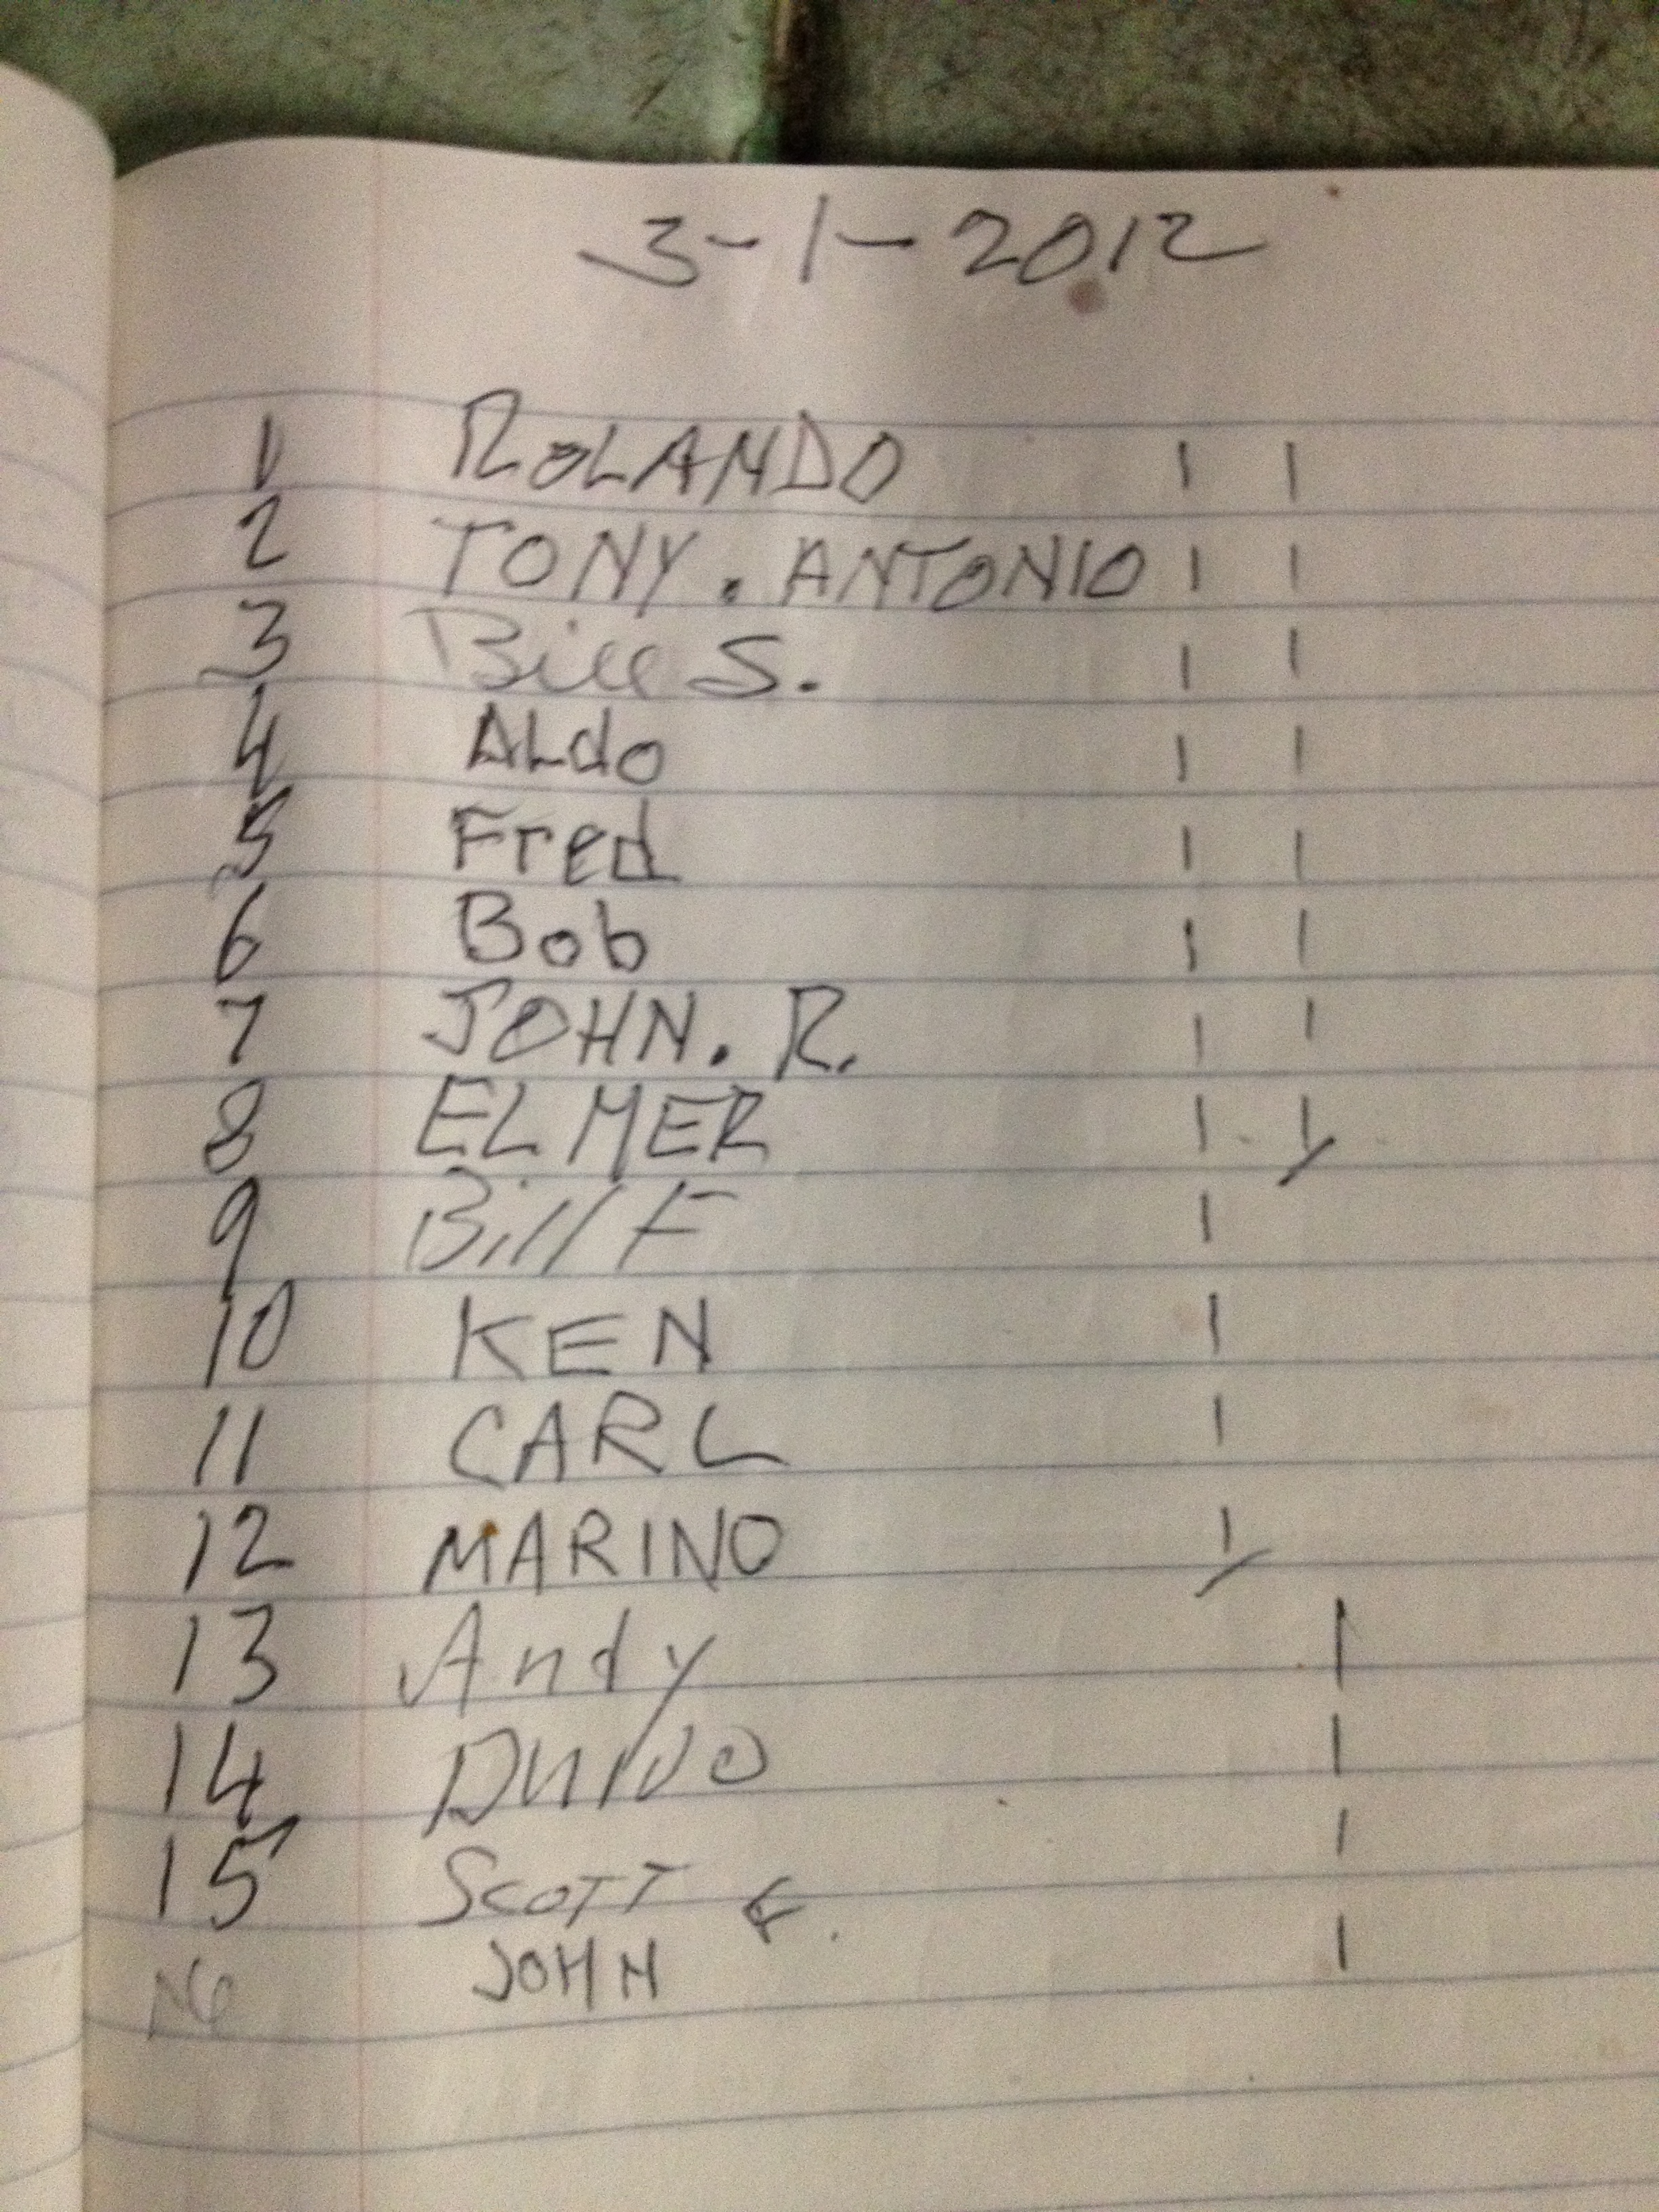 3-1-2012
1 ROLANDO | |
2 TONY . ANTONIO | |
3 Bill S. | |
4 ALdo | |
5 Fred | |
6 Bob | |
7 JOHN. R. | |
8 ELMER | |
9 Bill F |
10 KEN |
11 CARL |
12 MARINO |
13 Andy |
14 |
15 SCOTT |
16 JOHN |